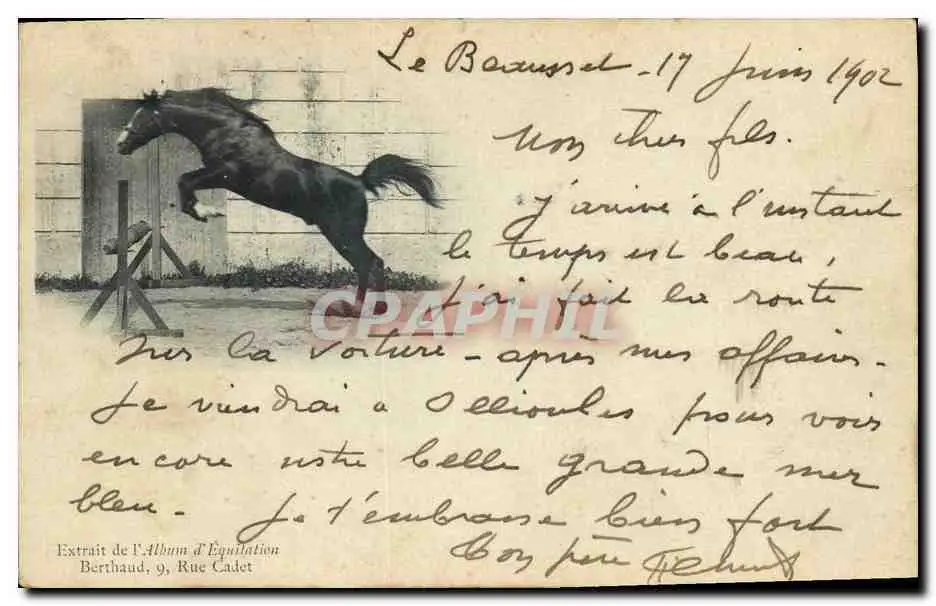 Le Beausset - 17 Juin 1902
Mon cher fils.
J'arrive à l'instant
le temps est beau,
J'ai fait la route
sur la voiture - après mes affaires -
Je viendrai a Ollioules pour voir
encore notre belle grande mer
bleu - Je t'embrasse bien fort
Ton père
CPAPHIL
Extrait de l'Album d'Équitation
Berthaud, 9, Rue Cadet